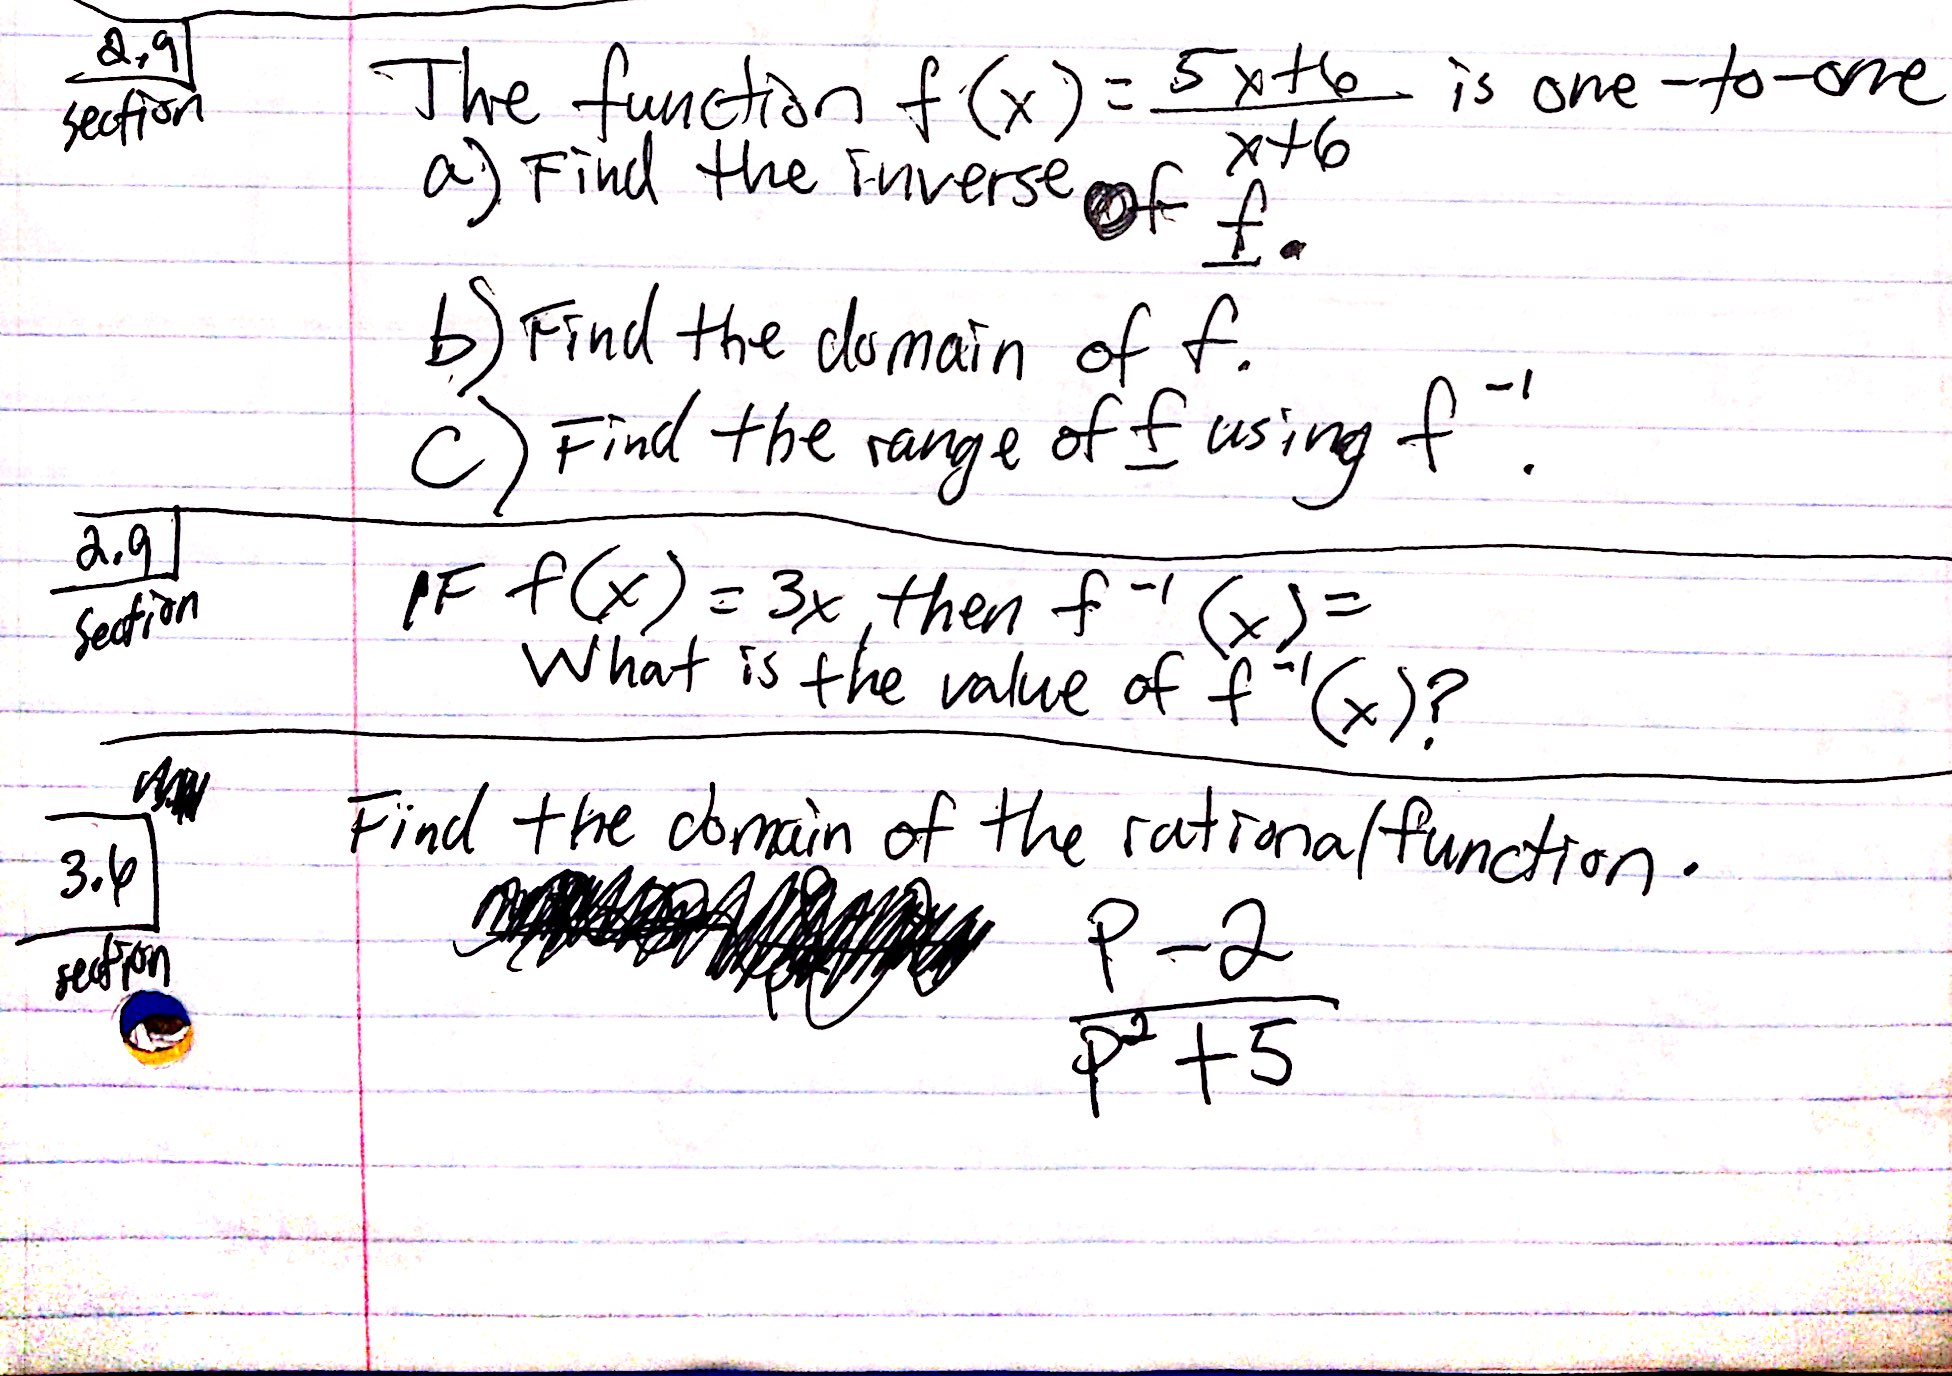 2.9
section
The function f(x) = 5x+6 / x+6 is one-to-one
a) Find the inverse of f.
b) Find the domain of f.
c) Find the range of f using f⁻¹.
2.9
section
IF f(x) = 3x, then f⁻¹(x) =
What is the value of f⁻¹(x)?
3.6
section
Find the domain of the rational function.
P - 2
P² + 5